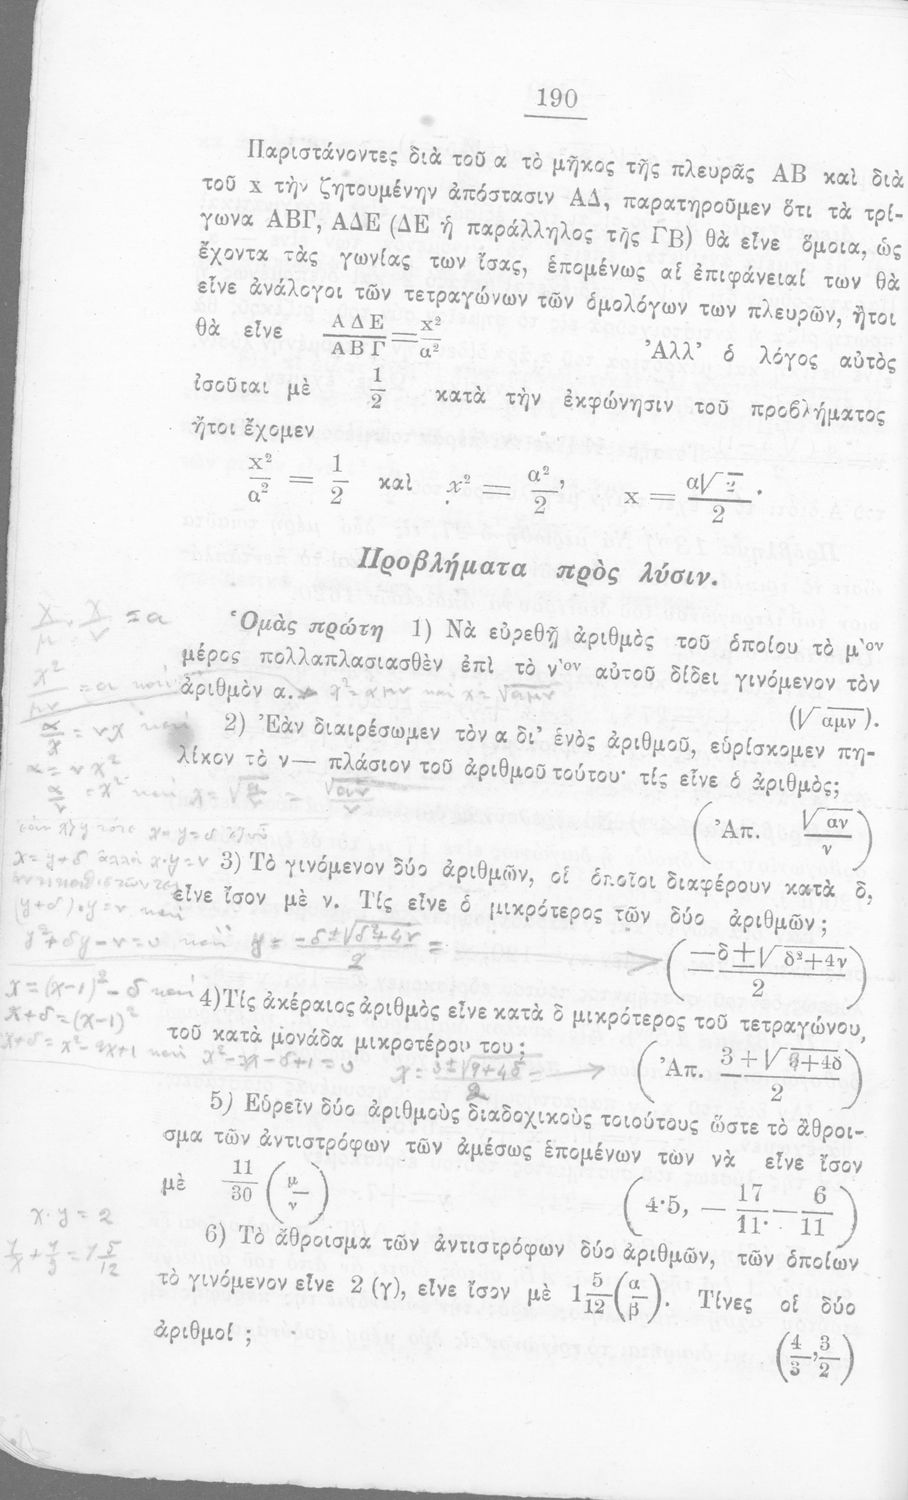 190
Παριστάνοντες διὰ τοῦ α τὸ μῆκος τῆς πλευρᾶς ΑΒ καὶ διὰ
τοῦ x τὴν ζητουμένην ἀπόστασιν ΑΔ, παρατηροῦμεν ὅτι τὰ τρί-
γωνα ΑΒΓ, ΑΔΕ (ΔΕ ἡ παράλληλος τῆς ΓΒ) θὰ εἶνε ὅμοια, ὡς
ἔχοντα τὰς γωνίας των ἴσας, ἑπομένως αἱ ἐπιφάνειαί των θὰ
εἶνε ἀνάλογοι τῶν τετραγώνων τῶν ὁμολόγων των πλευρῶν, ἤτοι
θὰ εἶνε ΑΔΕ/ΑΒΓ = x²/α². Ἀλλ' ὁ λόγος αὐτὸς
ἰσοῦται μὲ 1/2 κατὰ τὴν ἐκφώνησιν τοῦ προβλήματος
ἤτοι ἔχομεν
x²/α² = 1/2 καὶ x² = α²/2, x = α√2/2.
Προβλήματα πρὸς λύσιν.
Ὁμὰς πρώτη 1) Νὰ εὑρεθῇ ἀριθμὸς τοῦ ὁποίου τὸ μ'ον
x/μ · x/ν = α
μέρος πολλαπλασιασθὲν ἐπὶ τὸ ν'ον αὐτοῦ δίδει γινόμενον τὸν
ἀριθμὸν α.
x²/μν = α καὶ x² = αμν καὶ x = √αμν
(√αμν).
2) Ἐὰν διαιρέσωμεν τὸν α δι' ἑνὸς ἀριθμοῦ, εὑρίσκομεν πη-
α/x = νx καὶ
λίκον τὸ ν— πλάσιον τοῦ ἀριθμοῦ τούτου· τίς εἶνε ὁ ἀριθμὸς;
α = νx²
α/ν = x² καὶ x = √α/ν = √αν/ν
(Ἀπ. √αν/ν)
x>y τότε x-y=δ
3) Τὸ γινόμενον δύο ἀριθμῶν, οἱ ὁποῖοι διαφέρουν κατὰ δ,
x = y+δ ἀλλὰ x·y=ν
εἶνε ἴσον μὲ ν. Τίς εἶνε ὁ μικρότερος τῶν δύο ἀριθμῶν;
(y+δ)·y=ν καὶ
y²+δy-ν=0 καὶ y = -δ±√δ²+4ν/2 =
(—δ±√δ²+4ν/2)
x=(x-1)²-δ καὶ
4) Τίς ἀκέραιος ἀριθμὸς εἶνε κατὰ δ μικρότερος τοῦ τετραγώνου,
x+δ=(x-1)²
τοῦ κατὰ μονάδα μικροτέρου του;
x+δ=x²-2x+1 καὶ x²-3x-δ+1=0 x = 3±√9+4δ/2 =
(Ἀπ. 3+√9+4δ/2)
5) Εὑρεῖν δύο ἀριθμοὺς διαδοχικοὺς τοιούτους ὥστε τὸ ἄθροι-
σμα τῶν ἀντιστρόφων τῶν ἀμέσως ἑπομένων των νὰ εἶνε ἴσον
μὲ 11/30 (μ/ν) (4·5, —17/11·—6/11)
x·y=2
6) Τὸ ἄθροισμα τῶν ἀντιστρόφων δύο ἀριθμῶν, τῶν ὁποίων
1/x + 1/y = 1 5/12
τὸ γινόμενον εἶνε 2 (γ), εἶνε ἴσον μὲ 1 5/12 (α/β). Τίνες οἱ δύο
ἀριθμοί;
(4/3, 3/2)